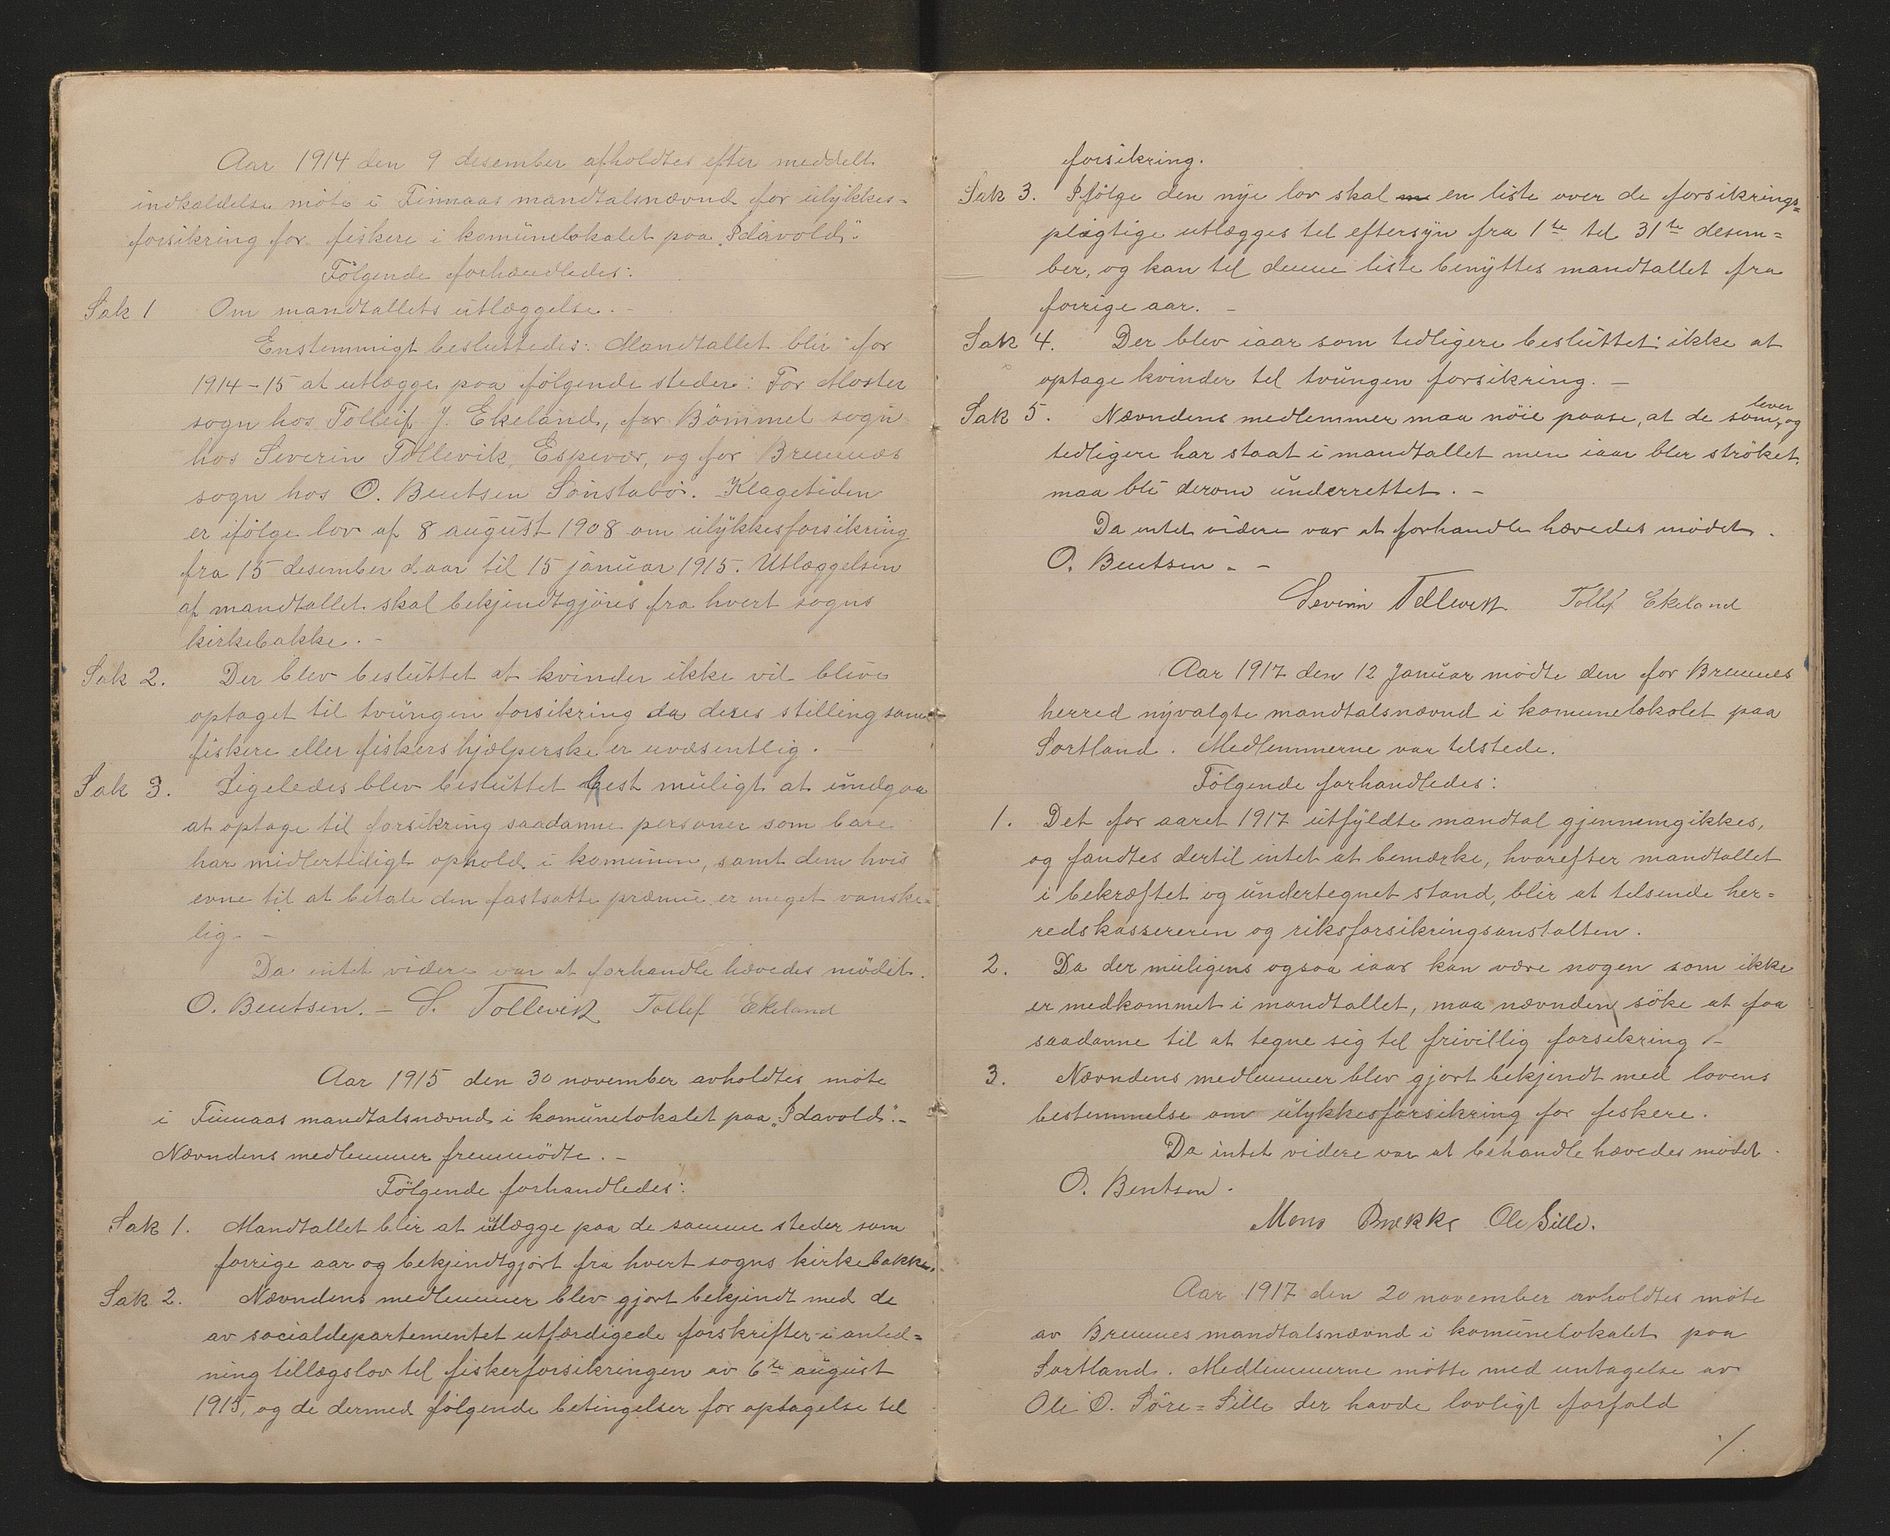 Aar 1914 den 9 desember afholdtes efter meddelt
indkaldelse møte i Finnaas mandtalsnævnd for ulykkes-
forsikring for fiskere i komunelokalet paa „Idavold".
Følgende forhandledes:
Sak 1 Om mandtallets utlæggelse. -
Enstemmigt besluttedes: Mandtallet blir for
1914-15 at utlægge paa følgende steder: For Moster
sogn hos Tolleif J. Ekeland, for Bömmel sogn
hos Severin Tollevik, Espevær, og for Bremnes
sogn hos O. Bentsen Sönstabö. Klagetiden
er ifölge lov af 8 august 1908 om ulykkesforsikring
fra 15 desember d aar til 15 januar 1915. Utlæggelsen
af mandtallet skal bekjendtgjöres fra hvert sogns
kirkebakke. -
Sak 2. Der blev besluttet at kvinder ikke vil blive
optaget til tvungen forsikring da deres stilling som
fiskere eller fiskers hjælperske er uvæsentlig. -
Sak 3. Ligeledes blev besluttet best muligt at undgaa
at optage til forsikring saadanne personer som bare
har midlertidigt ophold i komunen, samt dem hvis
evne til at betale den fastsatte præmie er meget vanske-
lig. -
Da intet videre var at forhandle hævedes mödet.
O. Bentsen. - S. Tollevik Tollef Ekeland
Aar 1915 den 30 november avholdtes möte
i Finnaas mandtalsnævnd i komunelokalet paa „Idavold". -
Nævndens medlemmer fremmödte. -
Følgende forhandledes:
Sak 1. Mandtallet blir at utlægge paa de samme steder som
forrige aar og bekjendtgjort fra hvert sogns kirkebakke.
Sak 2. Nævndens medlemmer blev gjort bekjendt med de
av socialdepartementet utfærdigede forskrifter i anled-
ning tillægslov til fiskerforsikringen av 6te august
1915, og de dermed følgende betingelser for optagelse til
forsikring.
Sak 3. Ifølge den nye lov skal en liste over de forsikrings=
pligtige utlægges til eftersyn fra 1ste til 31te desem=
ber, og kan til denne liste benyttes mandtallet fra
forrige aar. -
Sak 4. Der blev iaar som tidligere besluttet: ikke at
optage kvinder til tvungen forsikring. -
Sak 5. Nævndens medlemmer maa nöie paase, at de som lever og
tidligere har staat i mandtallet men iaar blir ströket,
maa bli derom underrettet. -
Da intet videre var at forhandle hævedes mödet.
O. Bentsen. -
Severin Tollevik Tollef Ekeland
Aar 1917 den 12 Januar mödte den for Bremnes
herred nyvalgte mandtalsnævnd i komunelokalet paa
Sortland. Medlemmerne var tilstede.
Følgende forhandledes:
1. Det for aaret 1917 utfyldte mandtal gjennemgikkes,
og fandtes dertil intet at bemærke, hvorefter mandtallet
i bekræftet og undertegnet stand, blir at tilsende her=
redskassereren og riksforsikringsanstalten.
2. Da der muligens ogsaa iaar kan være nogen som ikke
er medkommet i mandtallet, maa nævnden söke at faa
saadanne til at tegne sig til frivillig forsikring. -
3. Nævndens medlemmer blev gjort bekjendt med lovens
bestemmelse om ulykkesforsikring for fiskere.
Da intet videre var at behandle hævedes mödet.
O. Bentsen.
Mons Brække Ole Sille.
Aar 1917 den 20 november avholdtes möte
av Bremnes mandtalsnævnd i komunelokalet paa
Sortland. Medlemmerne mötte med untagelse av
Ole O. Söre=Sille der havde lovligt forfald
./.